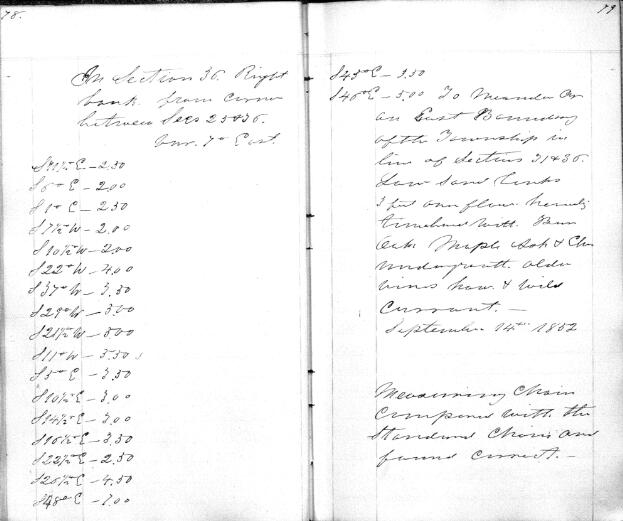 78.
In Section 36. Right
bank from corner
between Secs 25 & 36.
Var. 7° East.
S 9½° E – 2.50
S 6° E – 2.00
S 1° E – 2.50
S 7½° W – 2.00
S 10½° W – 2.00
S 22° W – 4.00
S 37° W – 3.50
S 29° W – 3.00
S 21½° W – 5.00
S 11° W – 3.50
S 5° E – 3.50
S 10½° E – 3.00
S 14½° E – 3.00
S 16½° E – 3.50
S 22½° E – 2.50
S 26½° E – 4.50
S 48° E – 1.00
79
S 45° E – 3.50
S 46° E – 5.00 To Meander Cor
on East Boundary
of the Township in
line of Sections 31 & 36.
Low Sand banks
overflow heavily
timbered with Bur
Oak Maple Ash & Elm
undergrowth alder
vines haw & wild
Currant. –
September 14th 1852
Measuring Chain
Compared with the
Standard Chain and
found correct. –